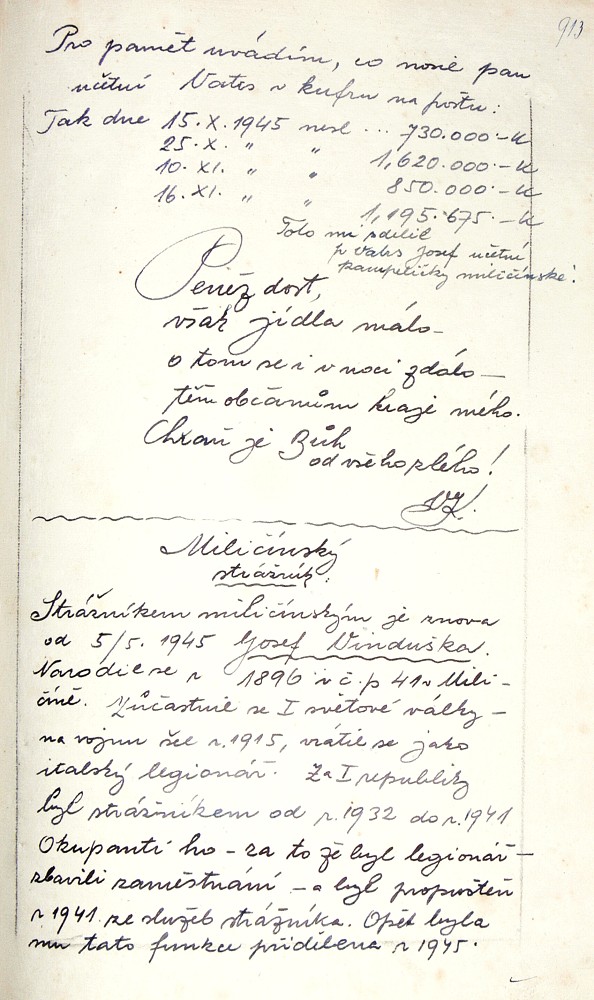 913
Pro paměť uvádím, co nosil pan
účetní Vates v kufru na poštu:
Tak dne 15.X.1945 nesl ... 730.000·-K
25.X. „ „ 1,620.000·-K
10.XI. „ „ 850.000·-K
16.XI. „ „ 1,195.675.-K
Toto mi sdělil
p Vates Josef účetní
kampeličky miličínské!
Peněz dost,
však jídla málo-
o tom se i v noci zdálo-
těm občanům kraje mého.
Chraň je Bůh
od všeho zlého!
VK.
Miličínský
strážník.
Strážníkem miličínským je znova
od 5/5. 1945 Josef Vinduška.
Narodil se r 1896 v č.p 41 v Mili-
číně. Zůčastnil se I světové války-
na vojnu šel r.1915, vrátil se jako
italský legionář. Za I republiky
byl strážníkem od r.1932 do r.1941
Okupanti ho - za to že byl legionář-
zbavili zaměstnání - a byl propuštěn
r.1941 ze služeb strážníka. Opět byla
mu tato funkce přidělena r 1945.